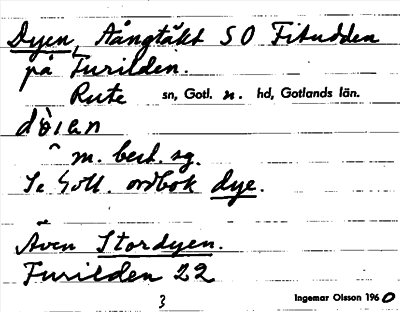 Dyen, tångtäkt SO Fitudden
på Furilden.
Rute sn, Gotl. n. hd, Gotlands län.
dö̀ıan
m. best. sg.
Se Gotl. ordbok dye.
Även Stordyen.
Furilden 22
3 Ingemar Olsson 1960